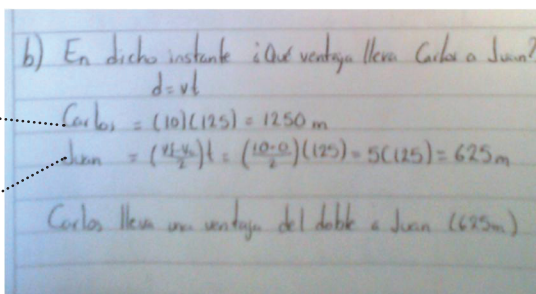 b) En dicho instante ¿Qué ventaja lleva Carlos a Juan?
d=vt
Carlos = (10)(125) = 1250 m
Juan = (vf-vo/2)t = (10-0/2)(125) = 5(125) = 625m
Carlos lleva una ventaja del doble a Juan (625m)